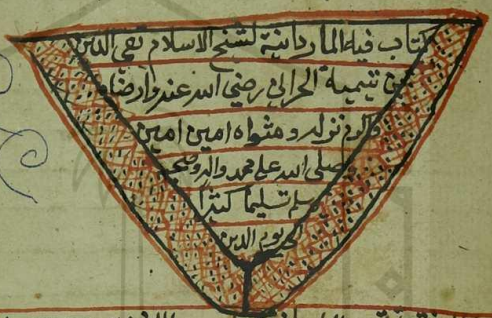 كتاب فيه الماردانية لشيخ الاسلام تقي الدين
بن تيمية الحراني رضي الله عنه وارضاه
واكرم نزله ومثواه امين امين
وصلى الله على محمد واله وصحبه
وسلم تسليما كثيرا
الى يوم الدين